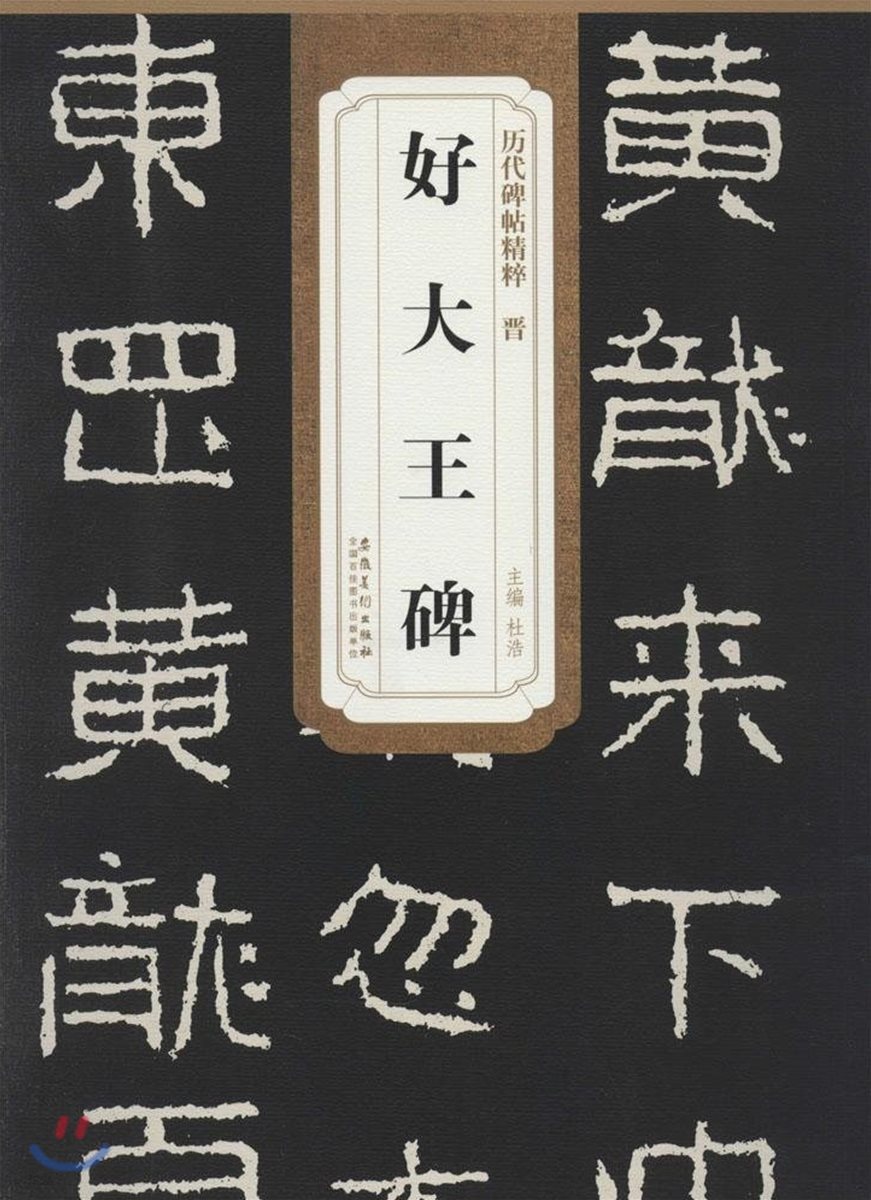 黄龍来下
历代碑帖精粹 晋
主编 杜浩
好大王碑
安徽美术出版社
全国百佳图书出版单位
忽
東罡黄龍